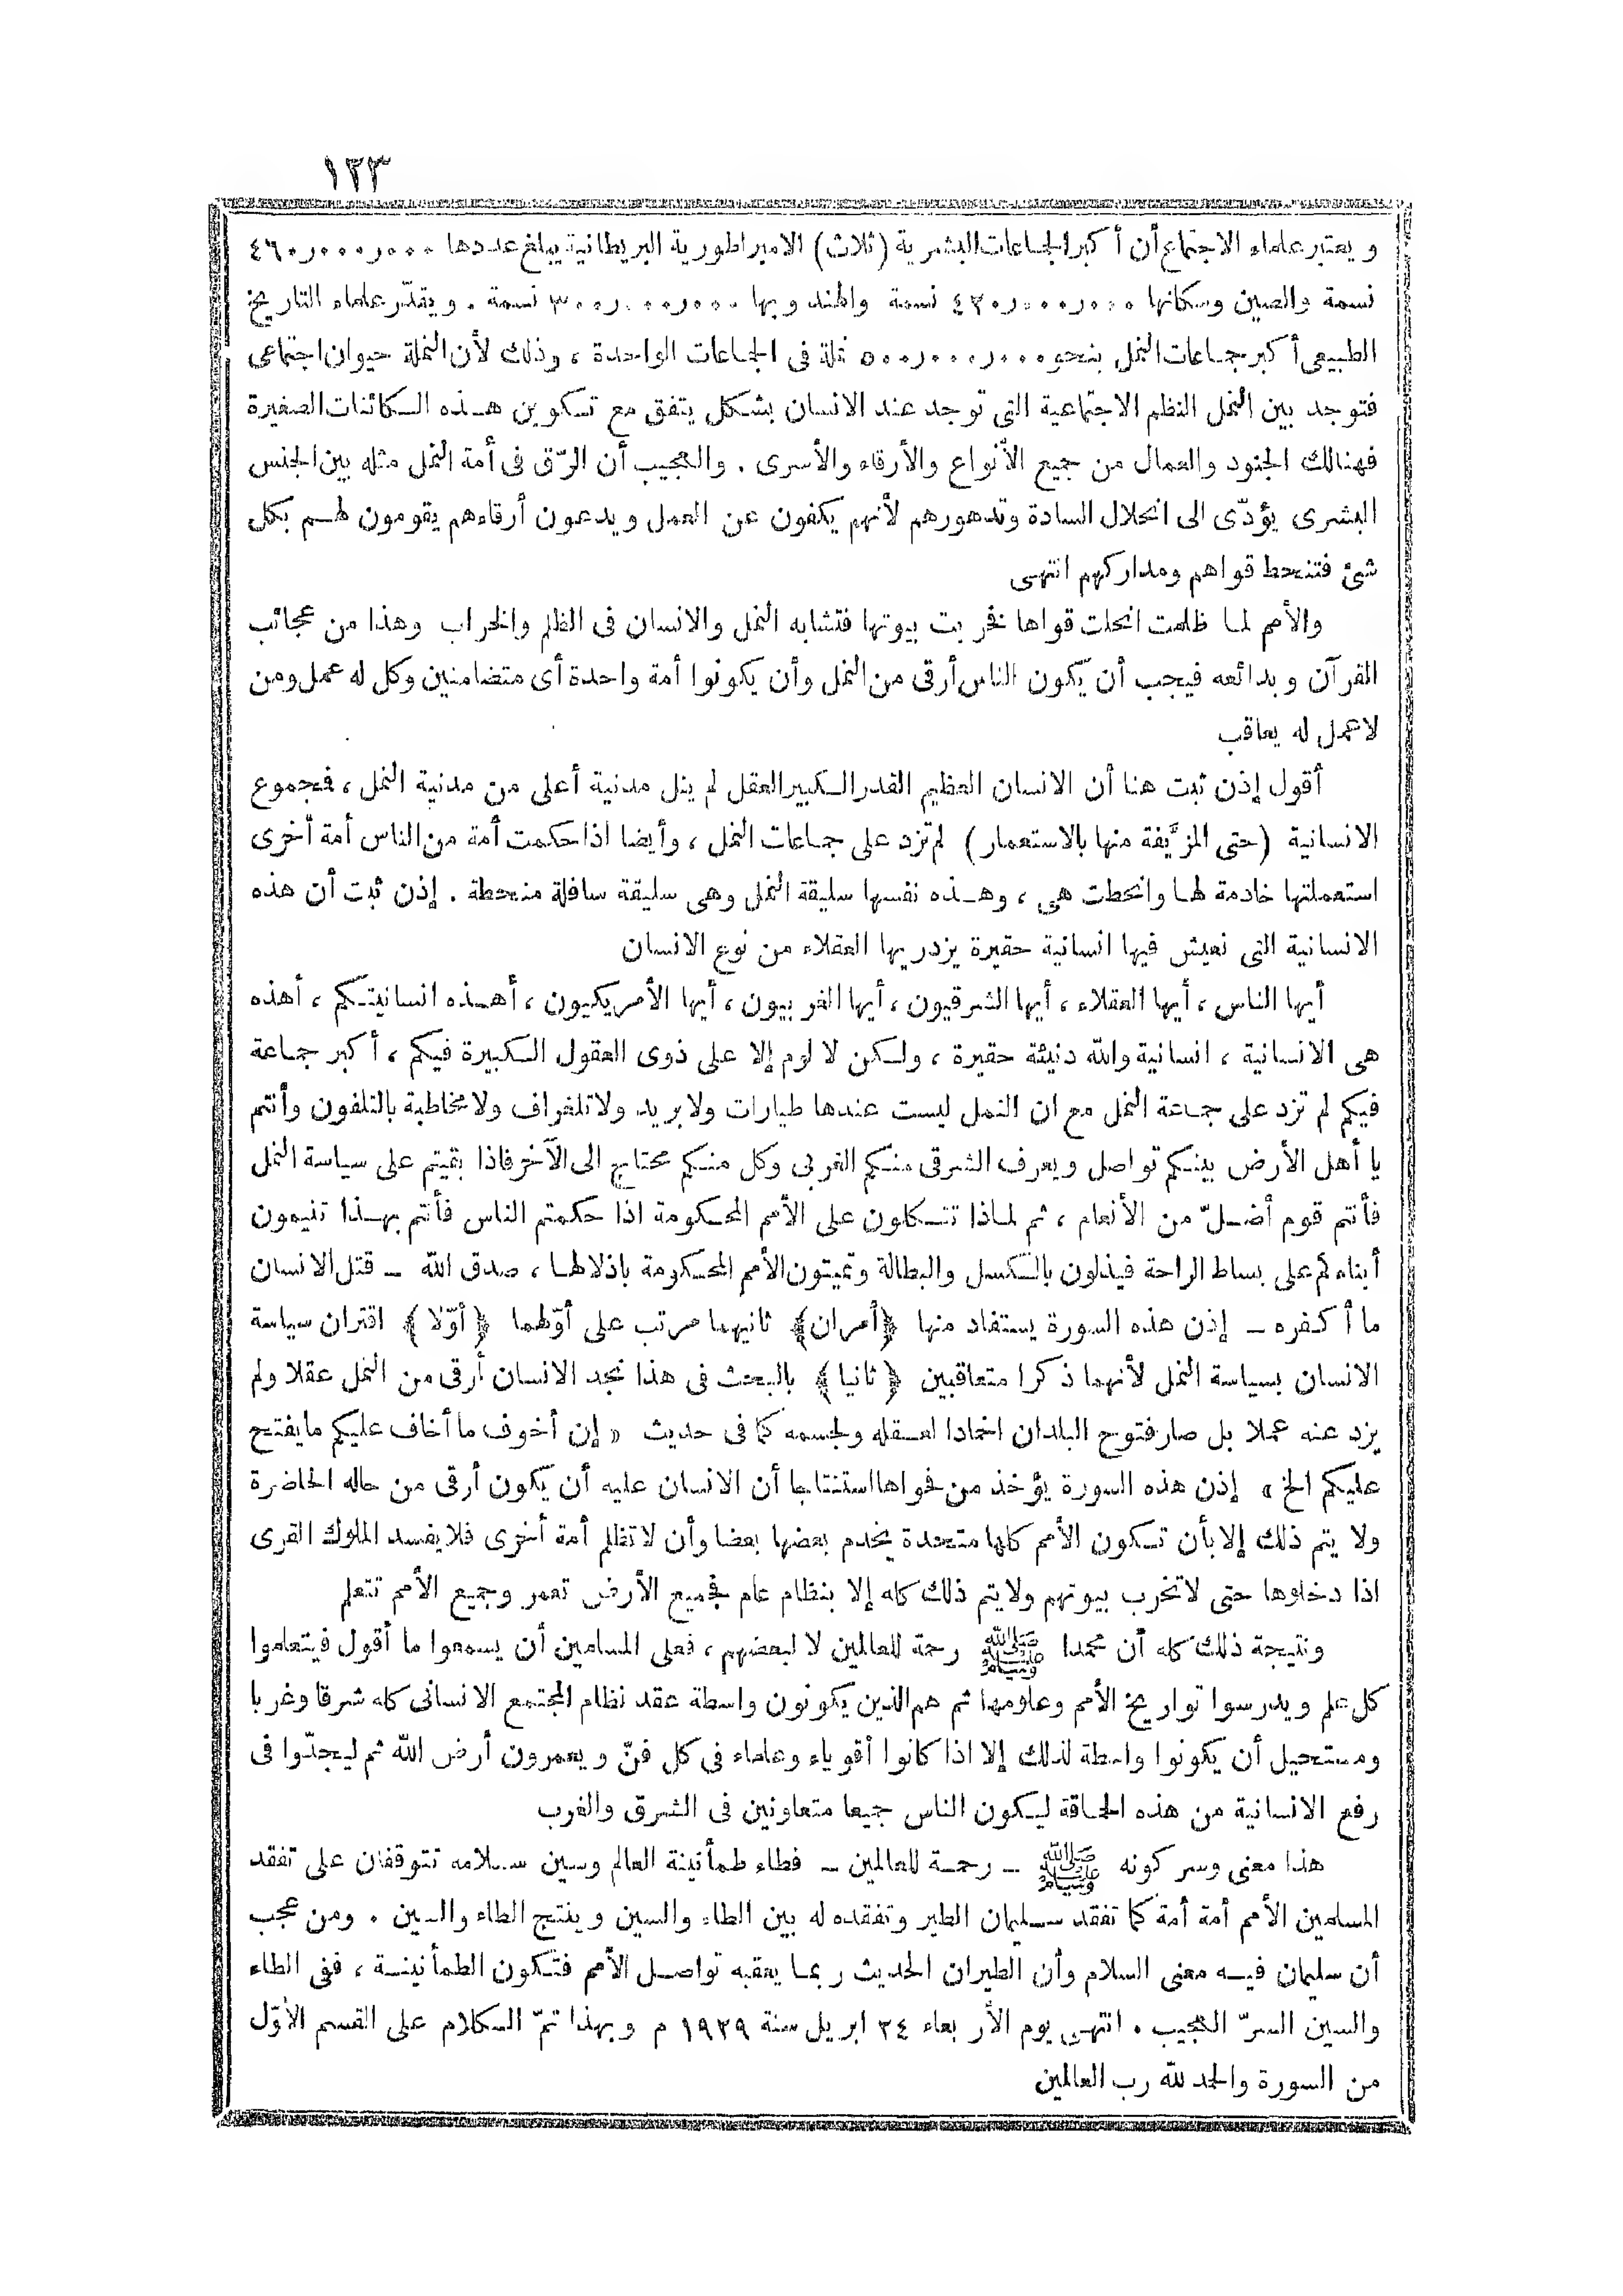 ١٢٣
ويعتبر علماء الاجتماع أن أكبر الجماعات البشرية (ثلاث) الامبراطورية البريطانية يبلغ عددها ٤٦٠٫٠٠٠٫٠٠٠
نسمة والصين وسكانها ٤٣٠٫٠٠٠٫٠٠٠ نسمة والهند وبها ٣٠٠٫٠٠٠٫٠٠٠ نسمة . ويقدّر علماء التاريخ
الطبيعى أكبر جماعات النمل بنحو ٥٠٠٫٠٠٠٫٠٠٠ نملة فى الجماعات الواحدة ، وذلك لأن النملة حيوان اجتماعى
فتوجد بين النمل النظم الاجتماعية التى توجد عند الانسان بشكل يتفق مع تكوين هذه الكائنات الصغيرة
فهنالك الجنود والعمال من جميع الأنواع والأرقاء والأسرى . والعجيب أن الرّق فى أمة النمل مثله بين الجنس
البشرى يؤدّى الى انحلال السادة وتدهورهم لأنهم يكفون عن العمل ويدعون أرقاءهم يقومون لهم بكل
شئ فتنحط قواهم ومداركهم انتهى
والأمم لما ظلمت انحلت قواها فخربت بيوتها فتشابه النمل والانسان فى الظلم والخراب وهذا من عجائب
القرآن وبدائعه فيجب أن يكون الناس أرقى من النمل وأن يكونوا أمة واحدة أى متضامنين وكل له عمل ومن
لاعمل له يعاقب
أقول إذن ثبت هنا أن الانسان العظيم القدر الكبير العقل لم ينل مدنية أعلى من مدنية النمل ، فمجموع
الانسانية (حتى المزيَّفة منها بالاستعمار) لم تزد على جماعات النمل ، وأيضا اذا حكمت أمة من الناس أمة أخرى
استعملتها خادمة لها وانحطت هى ، وهذه نفسها سليقة النمل وهى سليقة سافلة منحطة . إذن ثبت أن هذه
الانسانية التى نعيش فيها انسانية حقيرة يزدريها العقلاء من نوع الانسان
أيها الناس ، أيها العقلاء ، أيها الشرقيون ، أيها الغربيون ، أيها الأمريكيون ، أهذه انسانيتكم ، أهذه
هى الانسانية ، انسانية والله دنيئة حقيرة ، ولكن لا لوم إلا على ذوى العقول الكبيرة فيكم ، أكبر جماعة
فيكم لم تزد على جماعة النمل مع ان النمل ليست عندها طيارات ولا بريد ولا تلغراف ولا مخاطبة بالتلفون وأنتم
يا أهل الأرض بينكم تواصل ويعرف الشرقى منكم الغربى وكل منكم محتاج الى الآخر فاذا بقيتم على سياسة النمل
فأنتم قوم أضلّ من الأنعام ، ثم لماذا تتكلون على الأمم المحكومة اذا حكمتم الناس فأنتم بهذا تنيمون
أبناءكم على بساط الراحة فيذلون بالكسل والبطالة وتميتون الأمم المحكومة باذلالها ، صدق الله ـ قتل الانسان
ما أكفره ـ إذن هذه السورة يستفاد منها ﴿أمران﴾ ثانيهما مرتب على أوّلهما ﴿أوّلا﴾ اقتران سياسة
الانسان بسياسة النمل لأنهما ذكرا متعاقبين ﴿ثانيا﴾ بالبحث فى هذا نجد الانسان أرقى من النمل عقلا ولم
يزد عنه عملا بل صار فتوح البلدان اخمادا لعقله ولجسمه كما فى حديث « إن أخوف ما أخاف عليكم ما يفتح
عليكم الخ » إذن هذه السورة يؤخذ من فحواها استنتاجا أن الانسان عليه أن يكون أرقى من حاله الحاضرة
ولا يتم ذلك إلا بأن تكون الأمم كلها متحدة يخدم بعضها بعضا وأن لا تظلم أمة أخرى فلا يفسد الملوك القرى
اذا دخلوها حتى لا تخرب بيوتهم ولا يتم ذلك كله إلا بنظام عام فجميع الأرض تعمر وجميع الأمم تتعلم
ونتيجة ذلك كله أن محمدا ﷺ رحمة للعالمين لا لبعضهم ، فعلى المسلمين أن يسمعوا ما أقول فيتعلموا
كل علم ويدرسوا تواريخ الأمم وعلومها ثم هم الذين يكونون واسطة عقد نظام المجتمع الانسانى كله شرقا وغربا
ومستحيل أن يكونوا واسطة لذلك إلا اذا كانوا أقوياء وعلماء فى كل فنّ ويعمرون أرض الله ثم ليجدّوا فى
رفع الانسانية من هذه الحماقة ليكون الناس جميعا متعاونين فى الشرق والغرب
هذا معنى وسر كونه ﷺ ـ رحمة للعالمين ـ فطاء طمأنينة العالم وسين سلامه تتوقفان على تفقد
المسلمين الأمم أمة أمة كما تفقد سليمان الطير وتفقده له بين الطاء والسين وينتج الطاء والسين . ومن عجب
أن سليمان فيه معنى السلام وأن الطيران الحديث ربما يعقبه تواصل الأمم فتكون الطمأنينة ، ففى الطاء
والسين السرّ العجيب . انتهى يوم الأربعاء ٢٤ ابريل سنة ١٩٢٩ م وبهذا تمّ الكلام على القسم الأوّل
من السورة والحمد لله رب العالمين